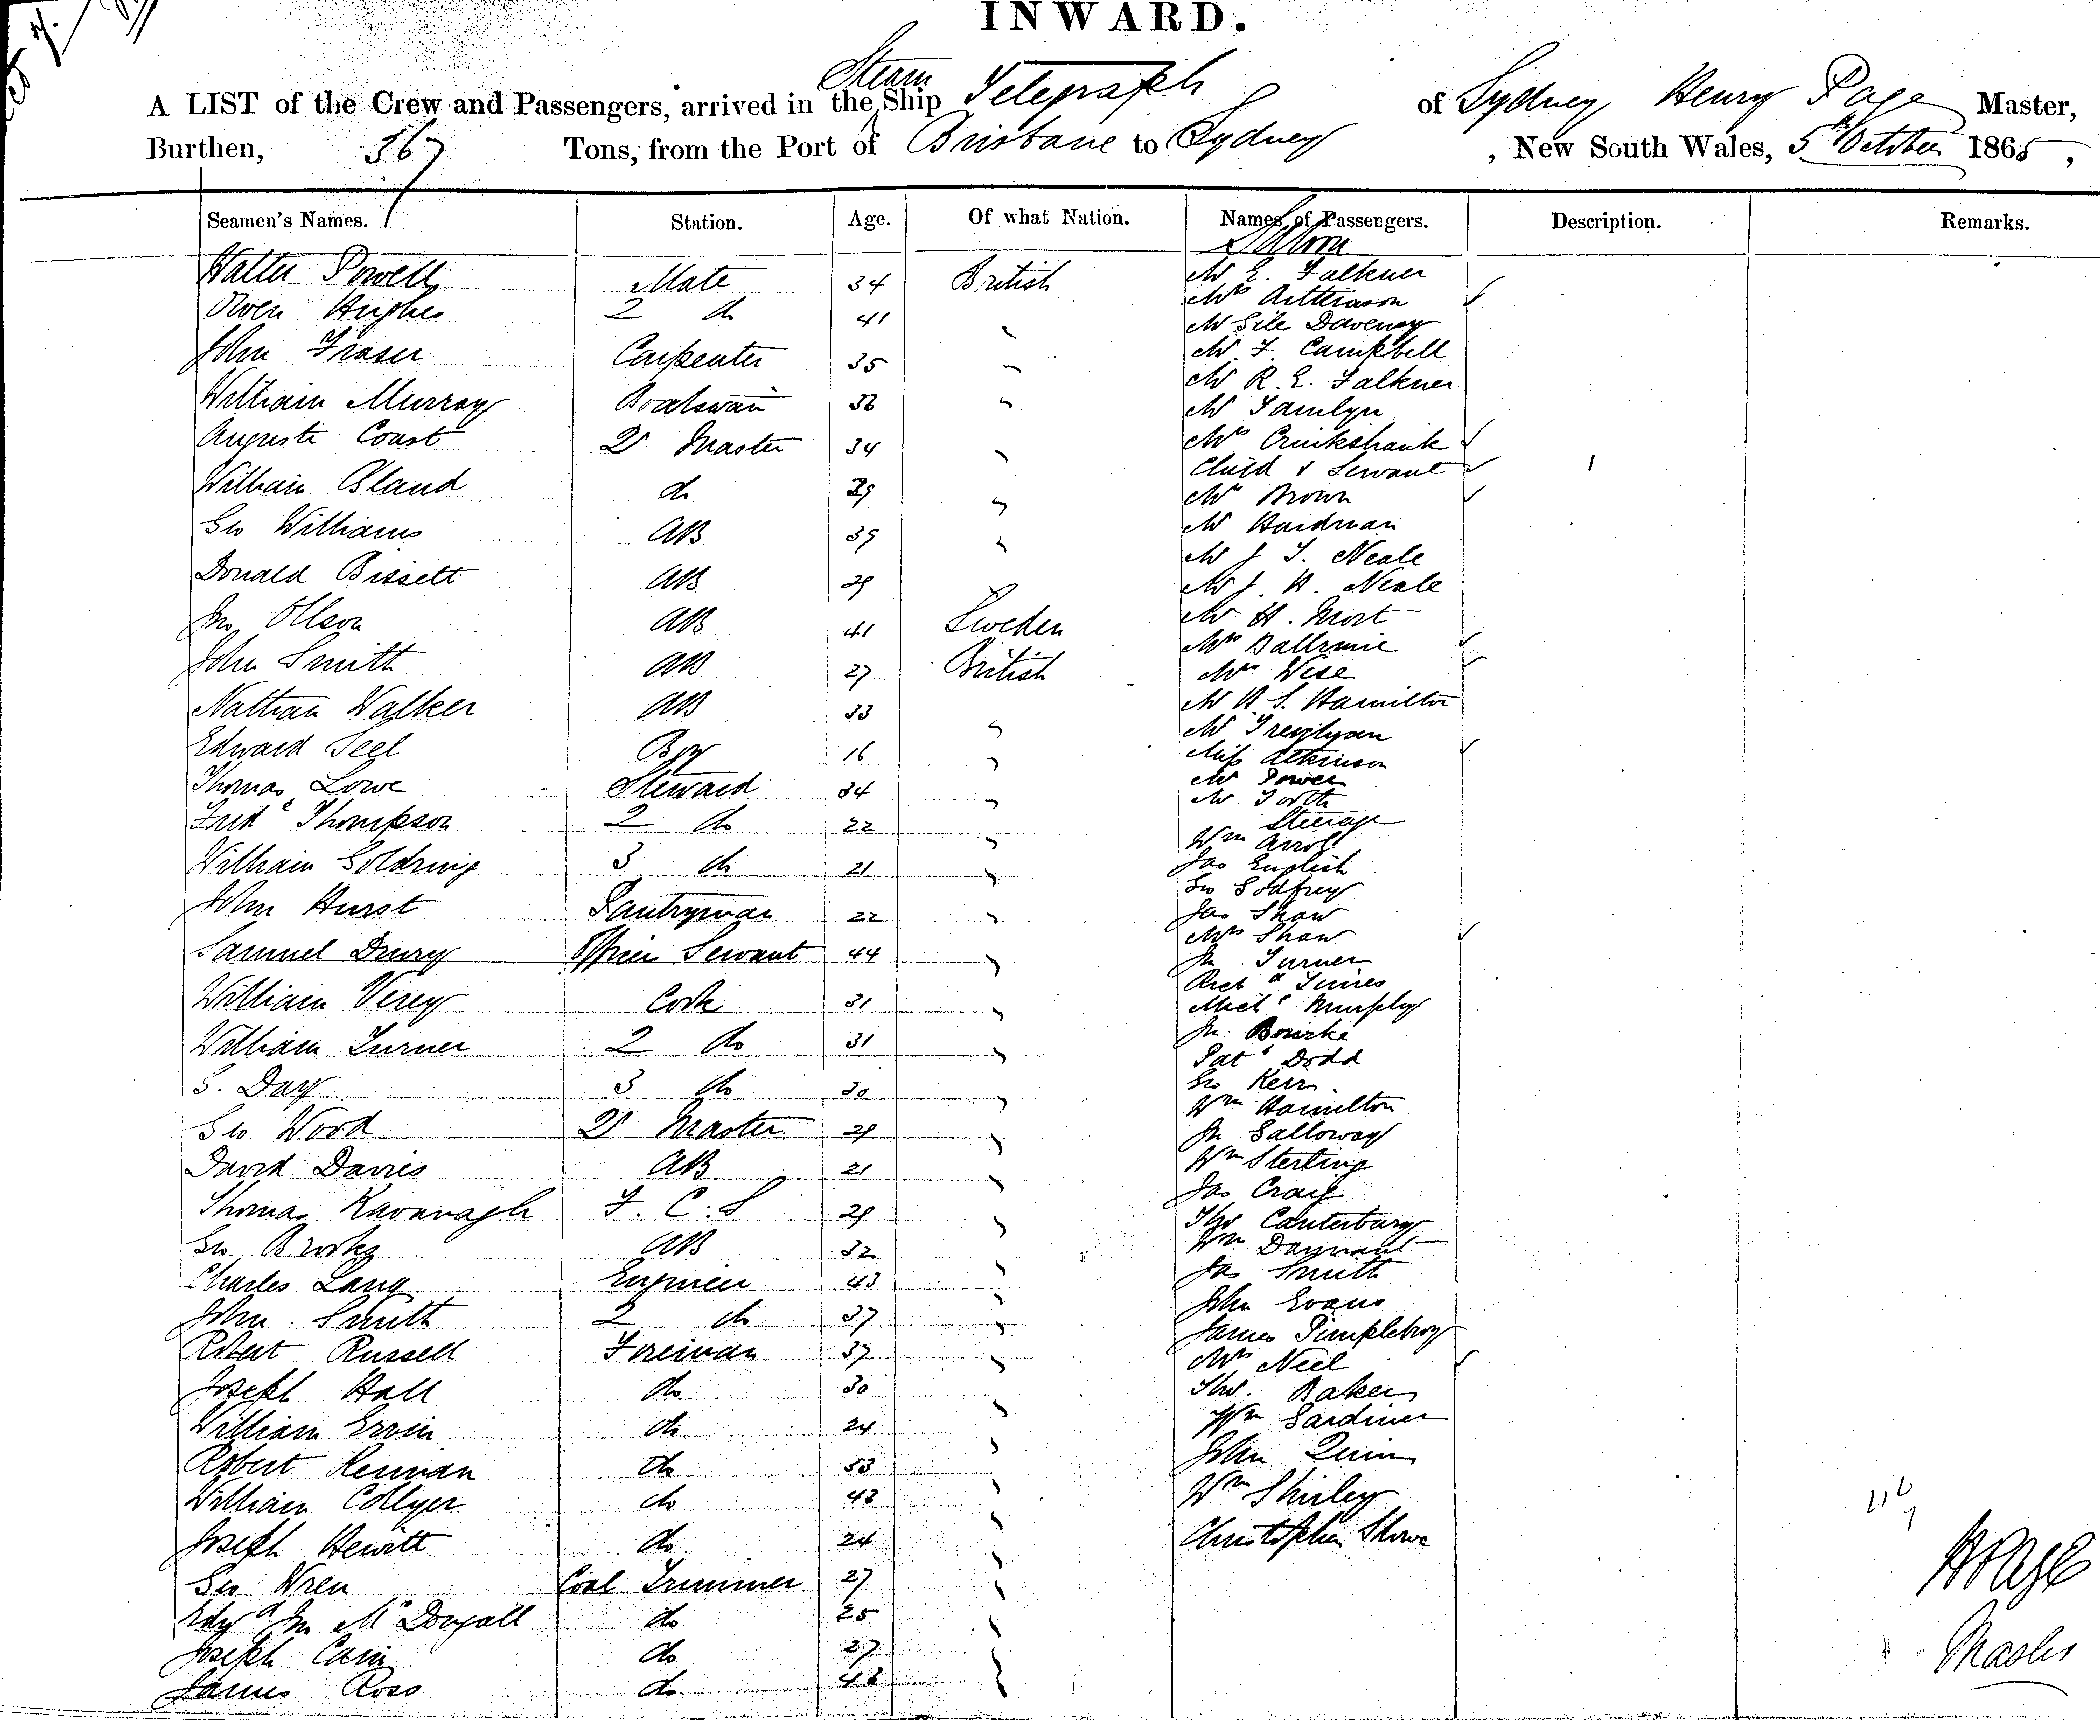 INWARD.
A LIST of the Crew and Passengers, arrived in the Steam Ship Telegraph of Sydney Henry Page Master,
Burthen, 367 Tons, from the Port of Brisbane to Sydney, New South Wales, 5th October 1865,
Seamen's Names. Station. Age. Of what Nation. Names of Passengers. Description. Remarks.
Saloon
Walter Powell Mate 34 British Mr E. Falkner
Owen Hughes 2 do 41 " Mrs
Mr Daveney
John Fraser Carpenter 35 " Mr F Campbell
Mr R. E. Falkner
William Murray Boatswain " Mr Tamlyn
Auguste Coast Qr Master 34 " Mrs Cruikshank
Child & Servant
William Bland do 29 " Mrs Brown
Geo Williams AB 39 " Mr Hardman
Mr J T. Neale
Donald Bissett AB 29 Mr J. H. Neale
Jno Ollson AB 41 Sweden Mr H. Mort
Mrs
John Smith AB 27 British Mrs Wise
Nathan Walker AB 33 " Mr H. S. Hamilton
Mr
Edward Teel Boy 16 " Miss Atkinson
Thomas Lowe Steward 34 " Mr Power
Mr Forth
Steerage
Fredk Thompson 2 do 22 " Wm Arroll
William Goldring 3 do 21 " Jas English
Geo Godfrey
John Hurst Pantryman 22 " Jas Shaw
Mrs Shaw
Samuel Drury Officer Servant 44 " Jn Turner
Richd
William Verey Cook 31 " Michl Murphy
Jn. Bourke
William Turner 2 do 31 " Patk Dodd
S. Day 3 do 30 " Geo Kerr
Wm Hamilton
Geo Wood Qr Master 29 " Jn Galloway
David Davies AB 21 " Wm Sterling
Jas Craig
Thomas Kavanagh F. C. S 29 " Thos Canterbury
Geo AB 32 " Wm
Charles Lang Engineer 43 " Jas Smith
John Smith 2 do 37 " John Evans
Robert Russell Fireman 37 " James
Mrs Neil
Joseph Hall do 30 " Thos. Baker
William Ervin do 24 " Wm Gardiner
Robert do 33 " John Quinn
William Collyer do 43 " Wm Shirley
Joseph Hewitt do 24 " Christopher
Geo Wren Coal Trimmer 27 "
Edwd Jn McDougall do 25 "
Joseph Cain do 27 "
James Ross do 43 "
H Page
Master